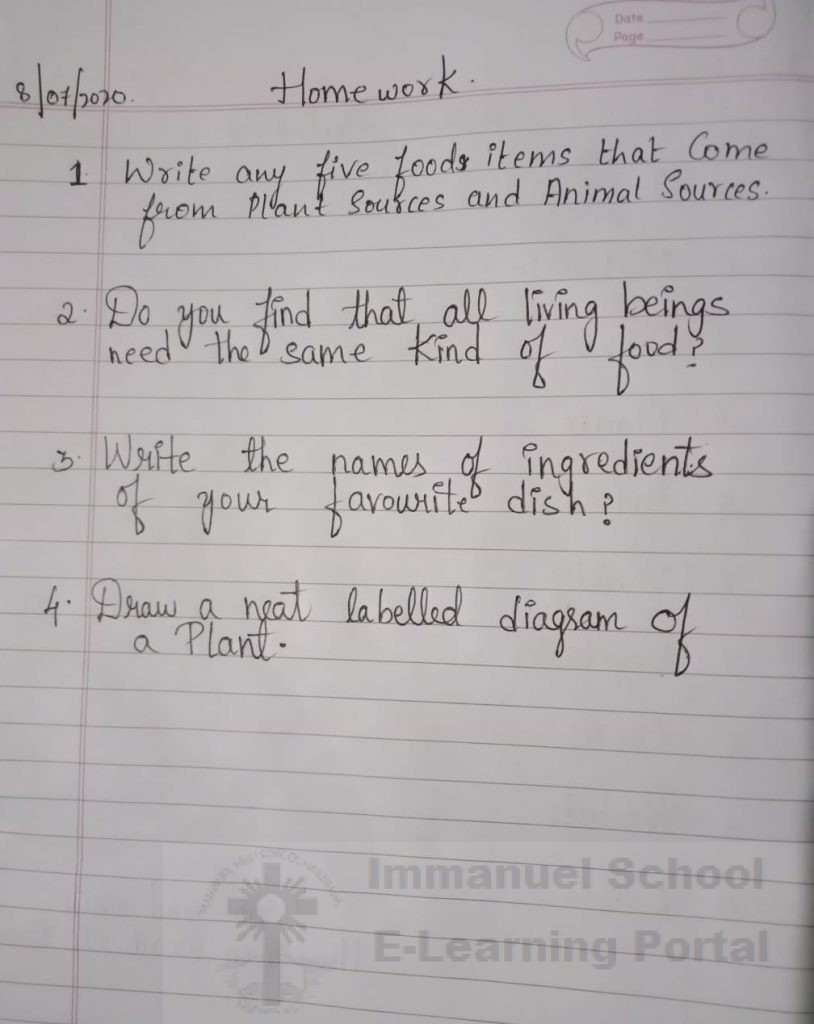 Date
Page
8/07/2020.
Homework.
1. Write any five foods items that Come
from Plant Sources and Animal Sources.
2. Do you find that all living beings
need the same kind of food?
3. Write the names of ingredients
of your favourite dish?
4. Draw a neat labelled diagram of
a Plant.
Immanuel School
E-Learning Portal